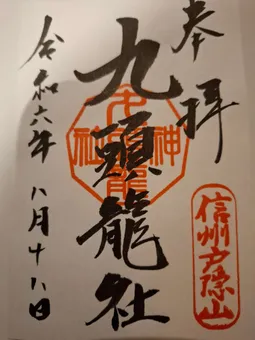 奉拝
九頭龍社
信州戸隠山
令和六年八月十八日